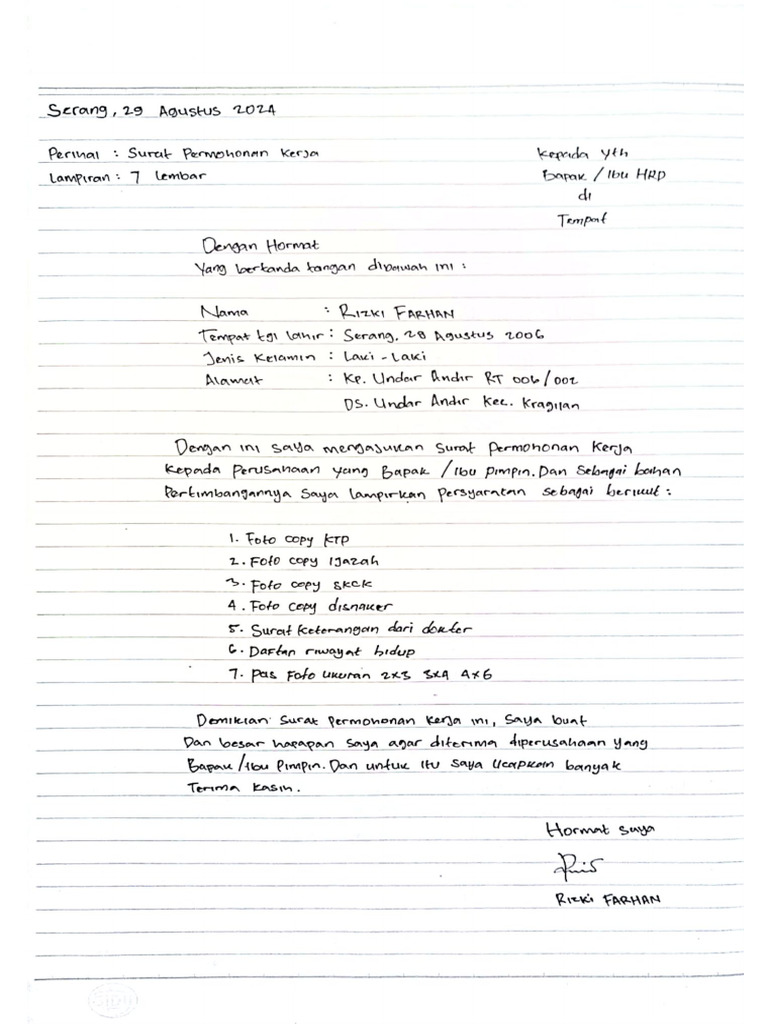 Serang, 29 Agustus 2024
Perihal : Surat Permohonan Kerja
Lampiran : 7 lembar
Kepada Yth
Bapak / Ibu HRD
di
Tempat
Dengan Hormat
Yang bertanda tangan dibawah ini :
Nama : RIZKI FARHAN
Tempat tgl lahir : Serang, 28 Agustus 2006
Jenis Kelamin : Laki - Laki
Alamat : Kp. Undar Andir RT 006/002
DS. Undar Andir Kec. Kragilan
Dengan ini saya mengajukan surat Permohonan Kerja
Kepada Perusahaan yang Bapak /Ibu Pimpin. Dan Sebagai bahan
Pertimbangannya Saya lampirkan Persyaratan sebagai berikut :
1. Foto copy KTP
2. Foto copy Ijazah
3. Foto copy SKCK
4. Foto copy disnaker
5. Surat Keterangan dari dokter
6. Daftar riwayat hidup
7. Pas Foto ukuran 2x3 3x4 4x6
Demikian surat Permohonan Kerja ini, saya buat
Dan besar harapan saya agar diterima diperusahaan yang
Bapak/Ibu Pimpin. Dan untuk itu saya Ucapkan banyak
Terima Kasih.
Hormat saya
RIZKI FARHAN